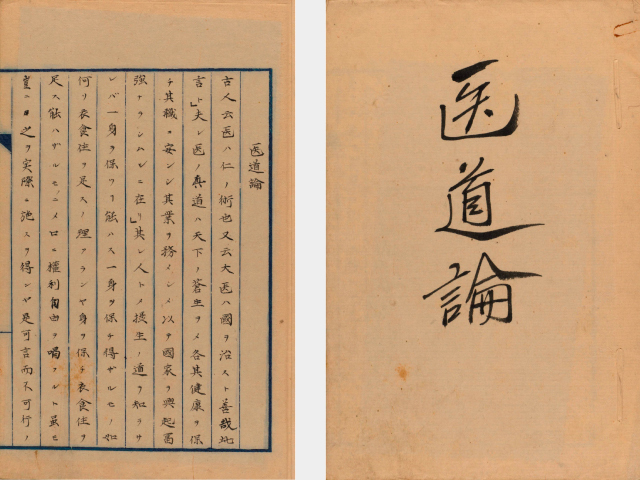 医道論
医道論
古人云医ハ仁ノ術也又云大医ハ國ヲ治スト善哉此
言ト」夫レ医ノ真道ハ天下ノ蒼生ヲメ各其健康ヲ保
チ其職ニ安ンシ其業ヲ務メシメ以テ國家ヲ興起富
強ナラシムルニ在リ」其レ人トメ摂生ノ道ヲ知ラサ
レバ一身ヲ保ツ能ハス一身ヲ保チ得ザルモノ如
何ソ衣食住ヲ足スノ理アランヤ身ヲ保チ衣食住ヲ
足ス能ハザルモニメ口ニ權利自由ヲ唱フルト虽モ
豈ニ之ヲ実際ニ施スヲ得ンヤ是可言而不可行ノ